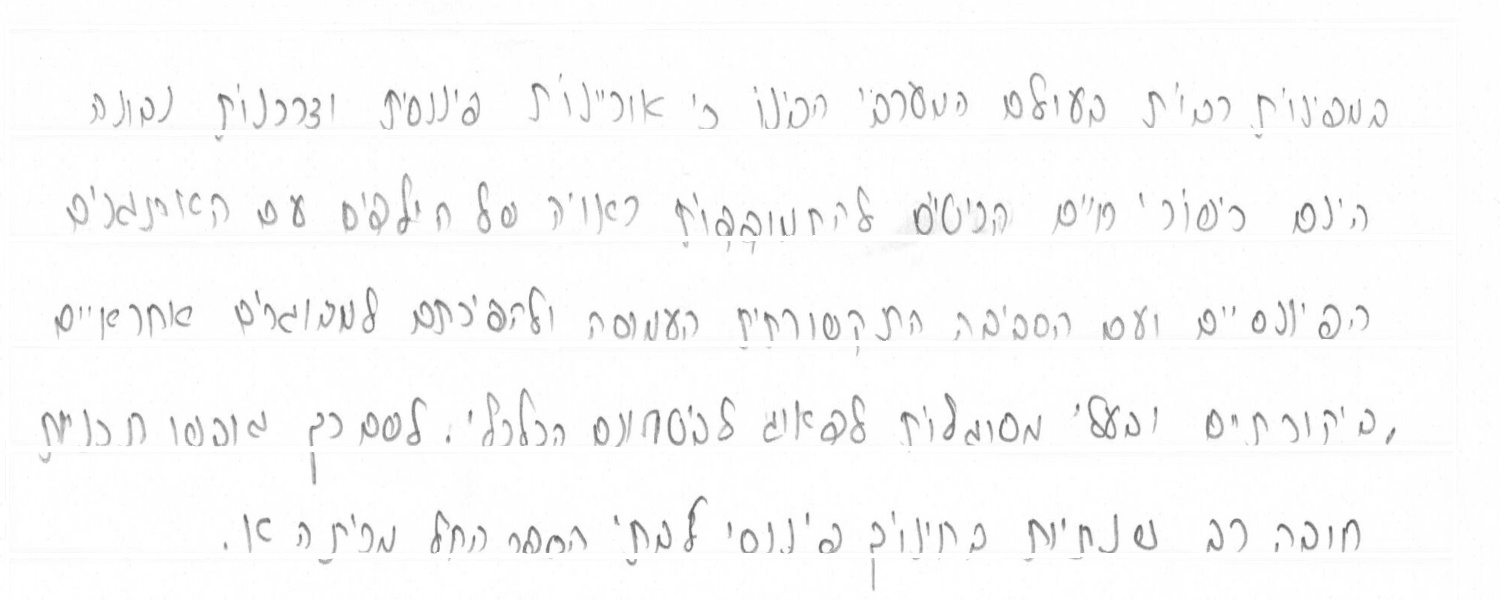 במדינות רבות בעולם המערבי הבינו כי אוריינות פיננסית וצרכנות נבונה
הינם כישורי חיים הכרחיים להתמודדות ראויה של חילדים עם האתגרים
הפיננסיים ועם הסביבה התקשורתית העמוסה ולהפיכתם למבוגרים אחראיים
,ביקורתיים ובעלי מסוגלות לדאוג לביטחונם הכלכלי. לשם כך גובשו תכניות
חובה רב שנתיות בחינוך פיננסי לבתי הספר החל מכיתה א.